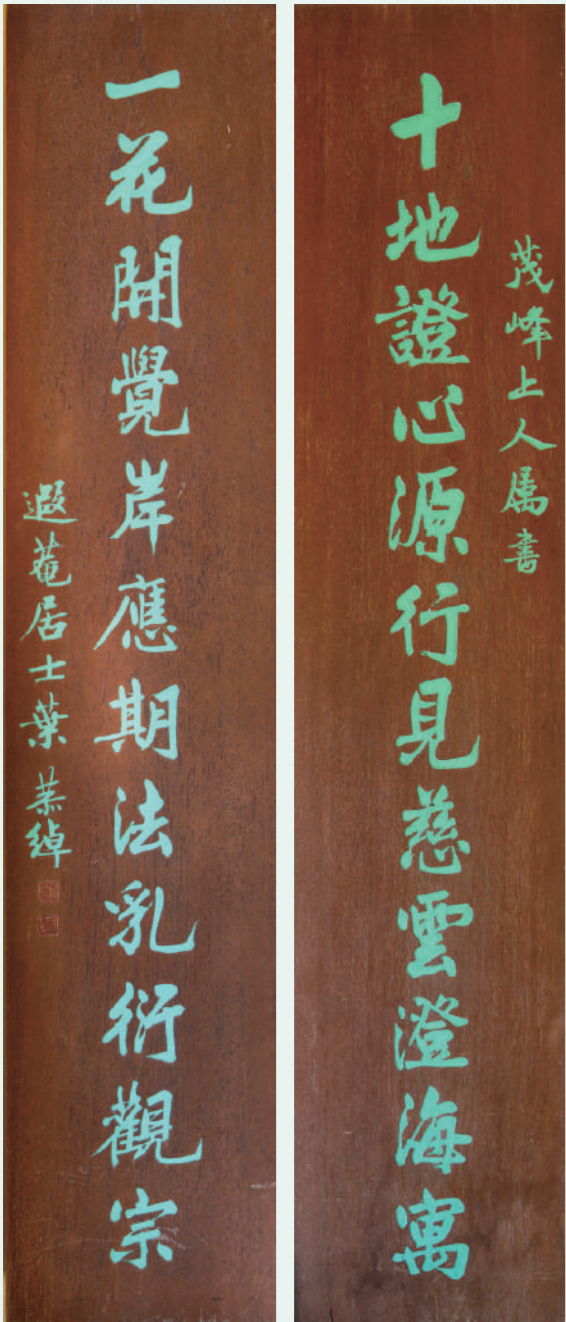 茂峰上人属書
十地證心源行見慈雲澄海寓
一花開覺岸應期法乳衍觀宗
遐菴居士葉恭綽